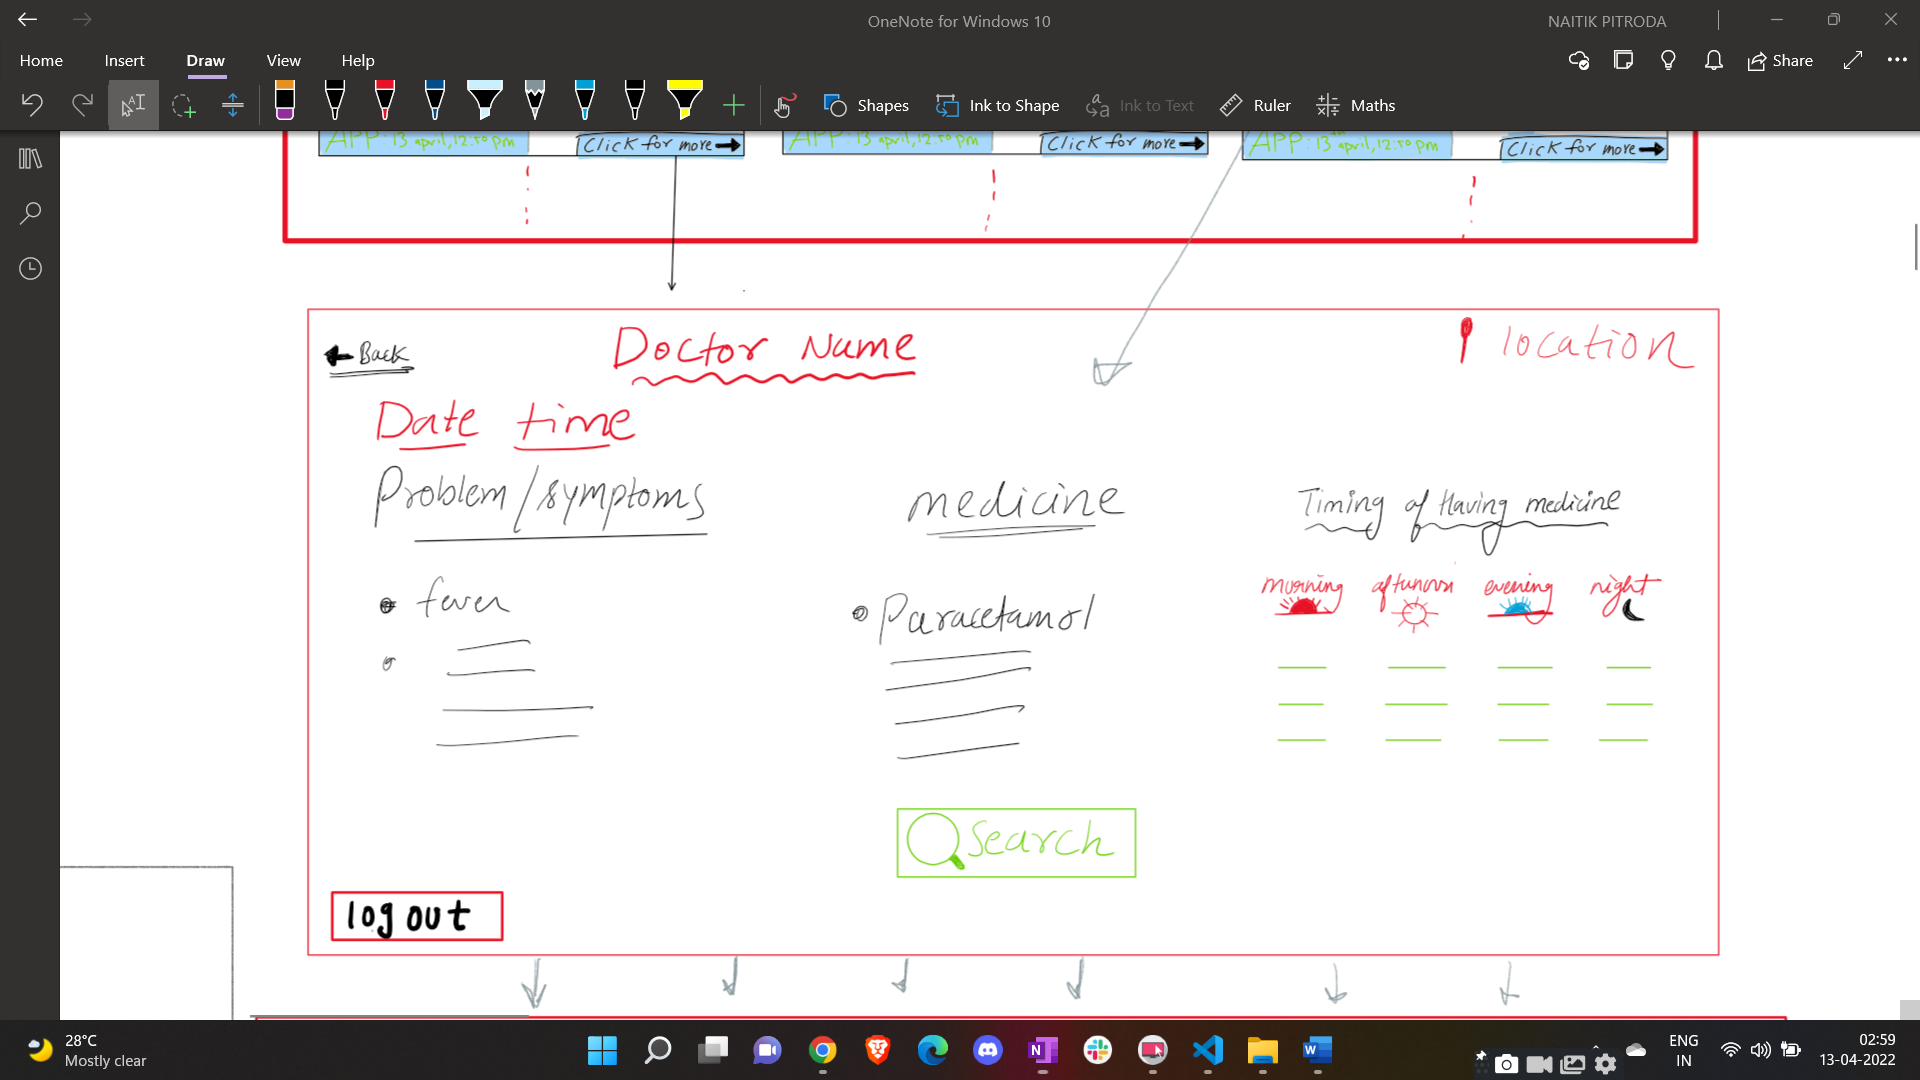 OneNote for Windows 10
NAITIK PITRODA
Home Insert Draw View Help
Share
Shapes Ink to Shape Ink to Text Ruler Maths
APP: 13 april, 12:50 pm Click for more APP: 13 april, 12:50 pm Click for more APP: 13th april, 12:50 pm Click for more
Back Doctor Name location
Date time
Problem/symptoms medicine Timing of Having medicine
morning afternoon evening night
fever Paracetamol
search
log out
28°C
Mostly clear
ENG
IN
02:59
13-04-2022